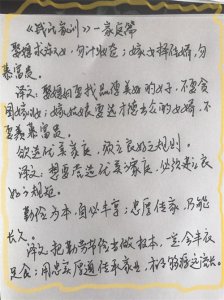 《钱氏家训》——家庭篇
娶媳求淑女，勿计妆奁；嫁女择佳婿，勿
慕富贵。
译文：娶媳妇要找品德美好的女子，不贪
图嫁妆；嫁女儿要选才德出众的女婿，不
要羡慕富贵。
欲造优美家庭，须立良好规则。
译文：想要营造优美家庭，必须建立良
好的规矩。
勤俭为本，自必丰亨；忠厚传家，乃能
长久。
译文：把勤劳节俭当做根本，一定会丰衣
足食；用忠实厚道传承家业，就能够源远流长。